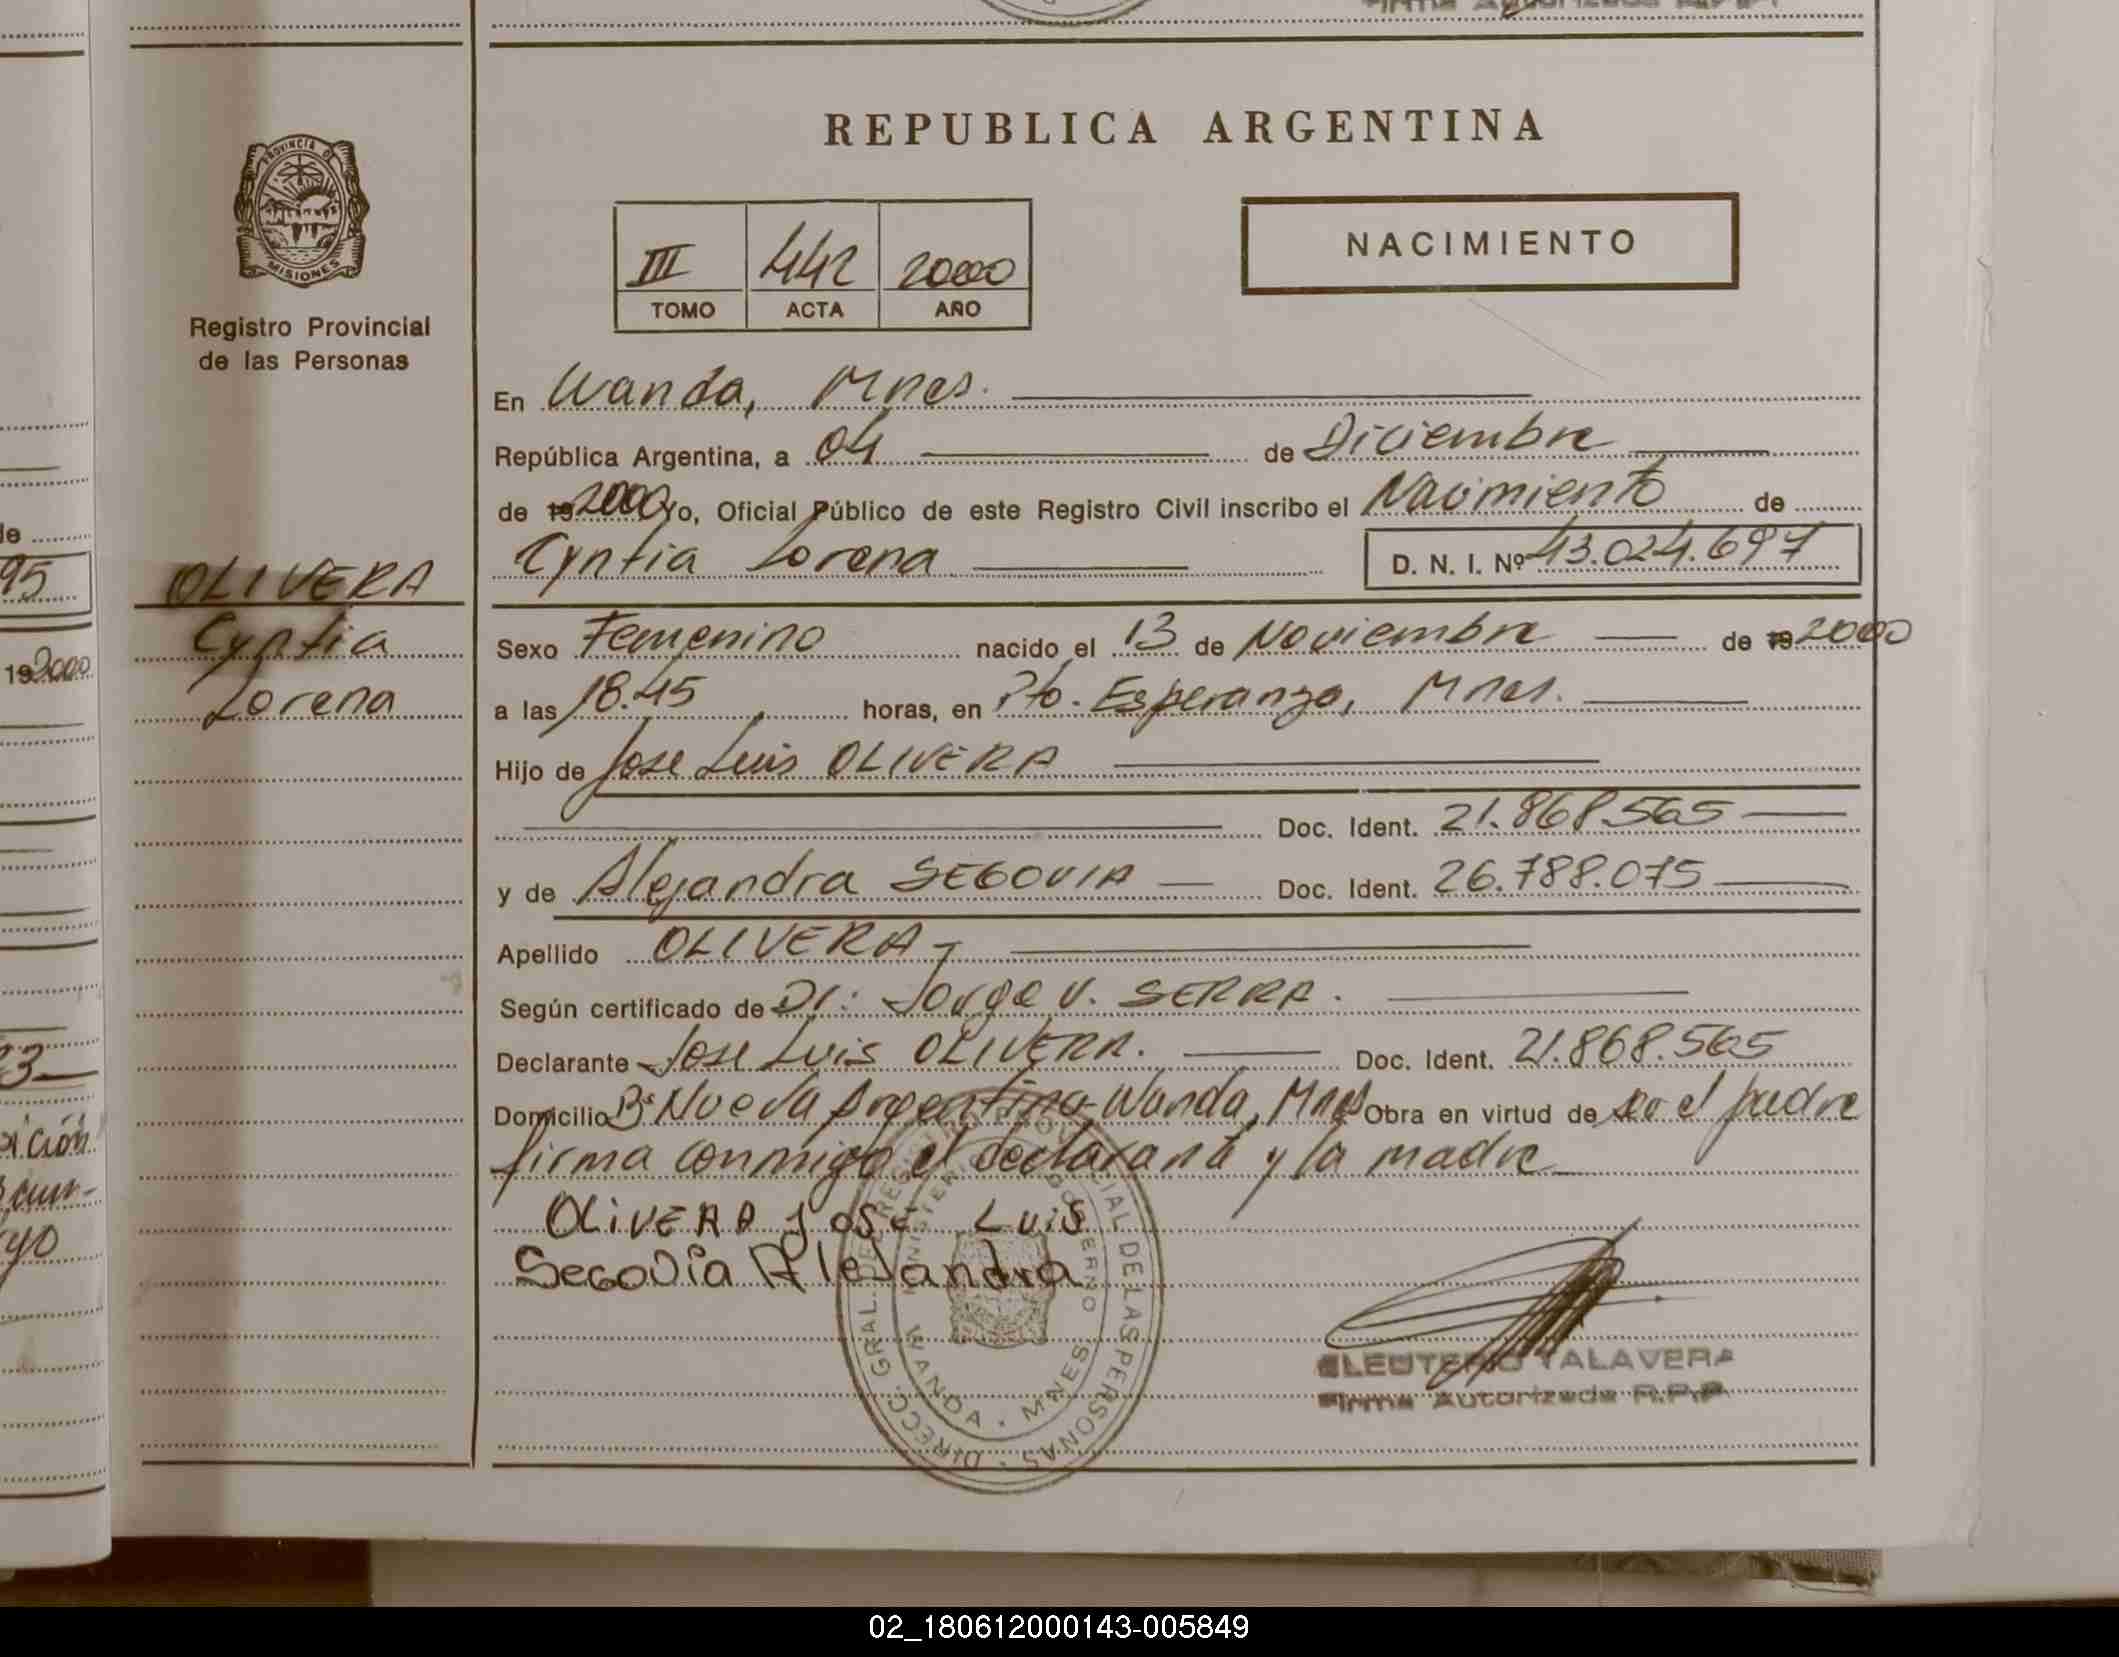 REPUBLICA ARGENTINA
PROVINCIA DE
MISIONES
Registro Provincial
de las Personas
III 442 2000
TOMO ACTA AÑO
NACIMIENTO
En Wanda, Mnes.
República Argentina, a 04 de Diciembre
de 19 2000 Yo, Oficial Público de este Registro Civil inscribo el Nacimiento de
Cyntia Lorena D. N. I. Nº 43.024.697
OLIVERA
Cyntia
Lorena
Sexo Femenino nacido el 13 de Noviembre de 19 2000
a las 18.45 horas, en Pto. Esperanza, Mnes.
Hijo de Jose Luis OLIVERA
Doc. Ident. 21.868.565
y de Alejandra SEGOVIA Doc. Ident. 26.788.075
Apellido OLIVERA
Según certificado de Dr. Jorge V. SERRA.
Declarante Jose Luis OLIVERA. Doc. Ident. 21.868.565
Domicilio Bº Nueva Argentina-Wanda, Mnes Obra en virtud de ser el padre
firma conmigo el declarante y la madre
OLIVERA JOSE LUIS
SEGOVia AleJandra
DIRECC. GRAL. DE REGISTRO PROVINCIAL DE LAS PERSONAS
MINISTERIO DE GOBIERNO
WANDA - MNES
ELEUTERIO TALAVERA
Firma Autorizada R.P.P.
95
19 2000
02_180612000143-005849